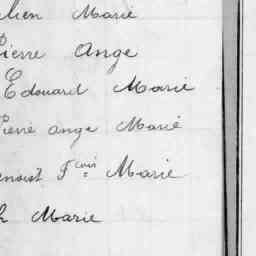 lien Marie
Pierre Ange
Edouard Marie
Pierre ange Marie
enoist Fcois Marie
h Marie